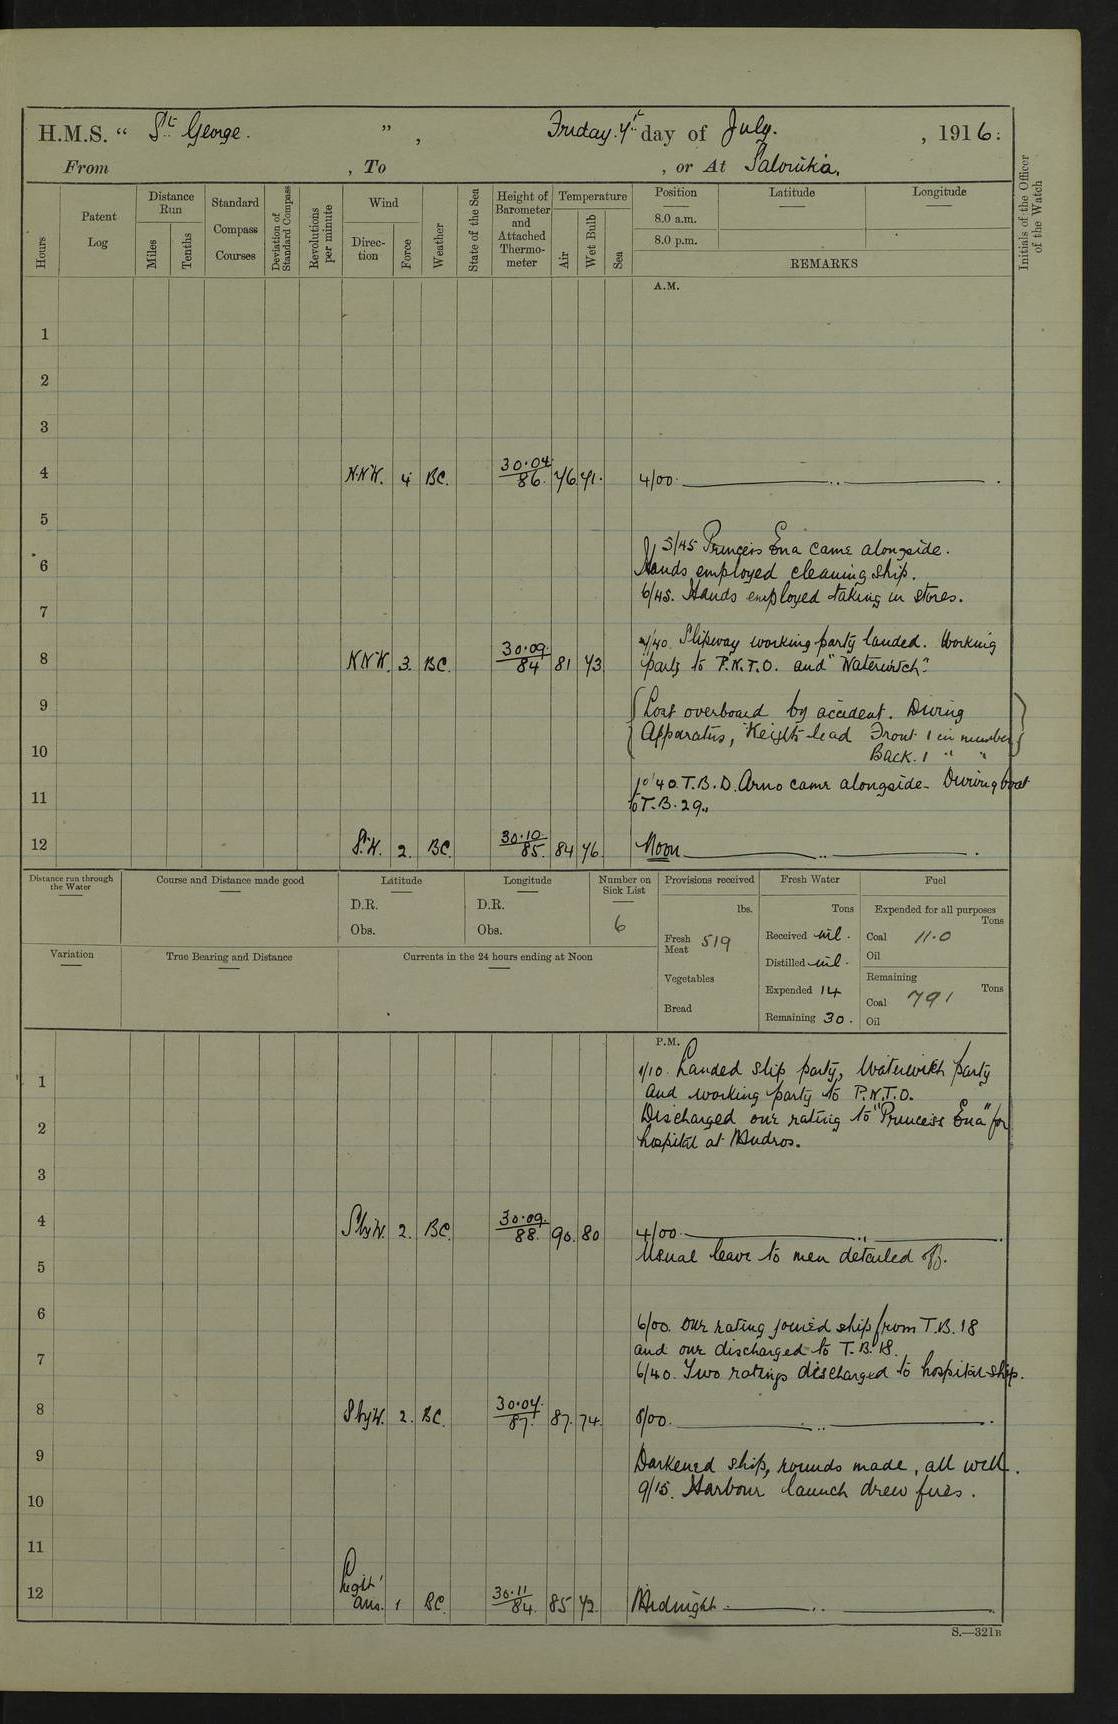 H.M.S. “ St. George. ” , Friday. 7th day of July. , 1916.
From , To , or At Salonika.
Hours
Patent Log
Distance Run
Miles
Tenths
Standard Compass Courses
Deviation of Standard Compass
Revolutions per minute
Wind
Direction
Force
Weather
State of the Sea
Height of Barometer and Attached Thermometer
Temperature
Air
Wet Bulb
Sea
Position
Latitude
Longitude
8.0 a.m.
8.0 p.m.
REMARKS
Initials of the Officer of the Watch
A.M.
1
2
3
4 N.N.W. 4 BC. 30.04/86. 76. 71. 4/00. ..
5
5/45 Princess Ena came alongside.
6 Hands employed cleaning ship.
6/45. Hands employed taking in stores.
7
7/40. Slipway working party landed. Working
8 N.N.W. 3. BC. 30.09./84 81 73 party to P.N.T.O. and "Waterwitch."
9 Lost overboard by accident. Diving
Apparatus, Weights lead Front 1 in number
10 Back. 1 " "
10/40. T.B.D. Arno came alongside. Diving boat
11 to T.B. 29.
12 S.W. 2. BC. 30.10./85. 84 76. Noon ..
Distance run through the Water
Course and Distance made good
Latitude
D.R.
Obs.
Longitude
D.R.
Obs.
Number on Sick List
6
Provisions received
lbs.
Fresh Meat 519
Vegetables
Bread
Fresh Water
Tons
Received nil.
Distilled nil.
Expended 14
Remaining 30.
Fuel
Expended for all purposes
Tons
Coal 11.0
Oil
Remaining
Tons
Coal 791
Oil
Variation
True Bearing and Distance
Currents in the 24 hours ending at Noon
P.M.
1/10. Landed slip party, Waterwitch party
1 and working party to P.N.T.O.
2 Discharged one rating to "Princess Ena" for
hospital at Mudros.
3
4 SbyW. 2. BC. 30.09./88. 90. 80 4/00. ..
Usual leave to men detailed off.
5
6 6/00. One rating joined ship from T.B. 18
and one discharged to T.B. 18.
7 6/40. Two ratings discharged to hospital ship.
8 SbyW. 2. BC. 30.07./87. 87. 74. 8/00. ..
9 Darkened ship, rounds made, all well.
9/15. Harbour launch drew fires.
10
11
12 Light airs. 1 BC. 30.11/84. 85 72. Midnight. ..
S.—321B